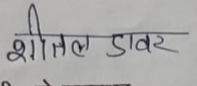 शीतल डावर